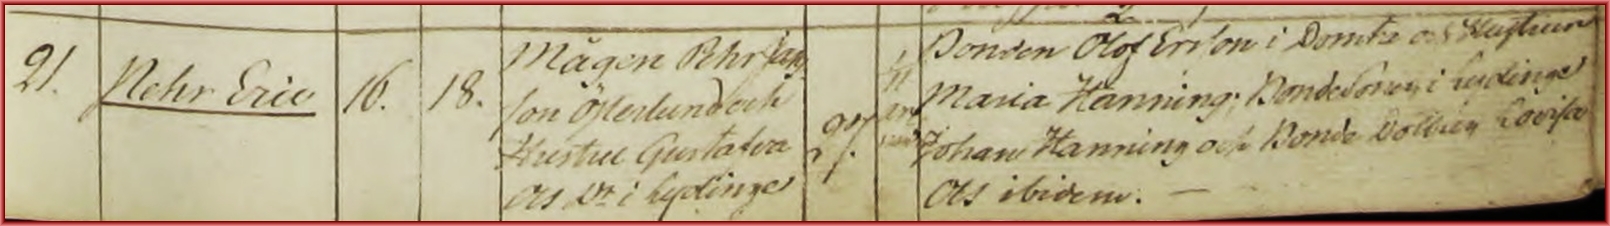 21. Pehr Eric 16. 18.
Mågen Pehr Jans
son Österlund och
Hustru Gustafva
Ols Dr i Lydinge
27.
Bonden Olof Ersson i Domta och Hustrun
Maria Hanning; Bondesonen i Lydinge
Johan Hanning och Bonde Dottren Lovisa
Ols ibidem. —